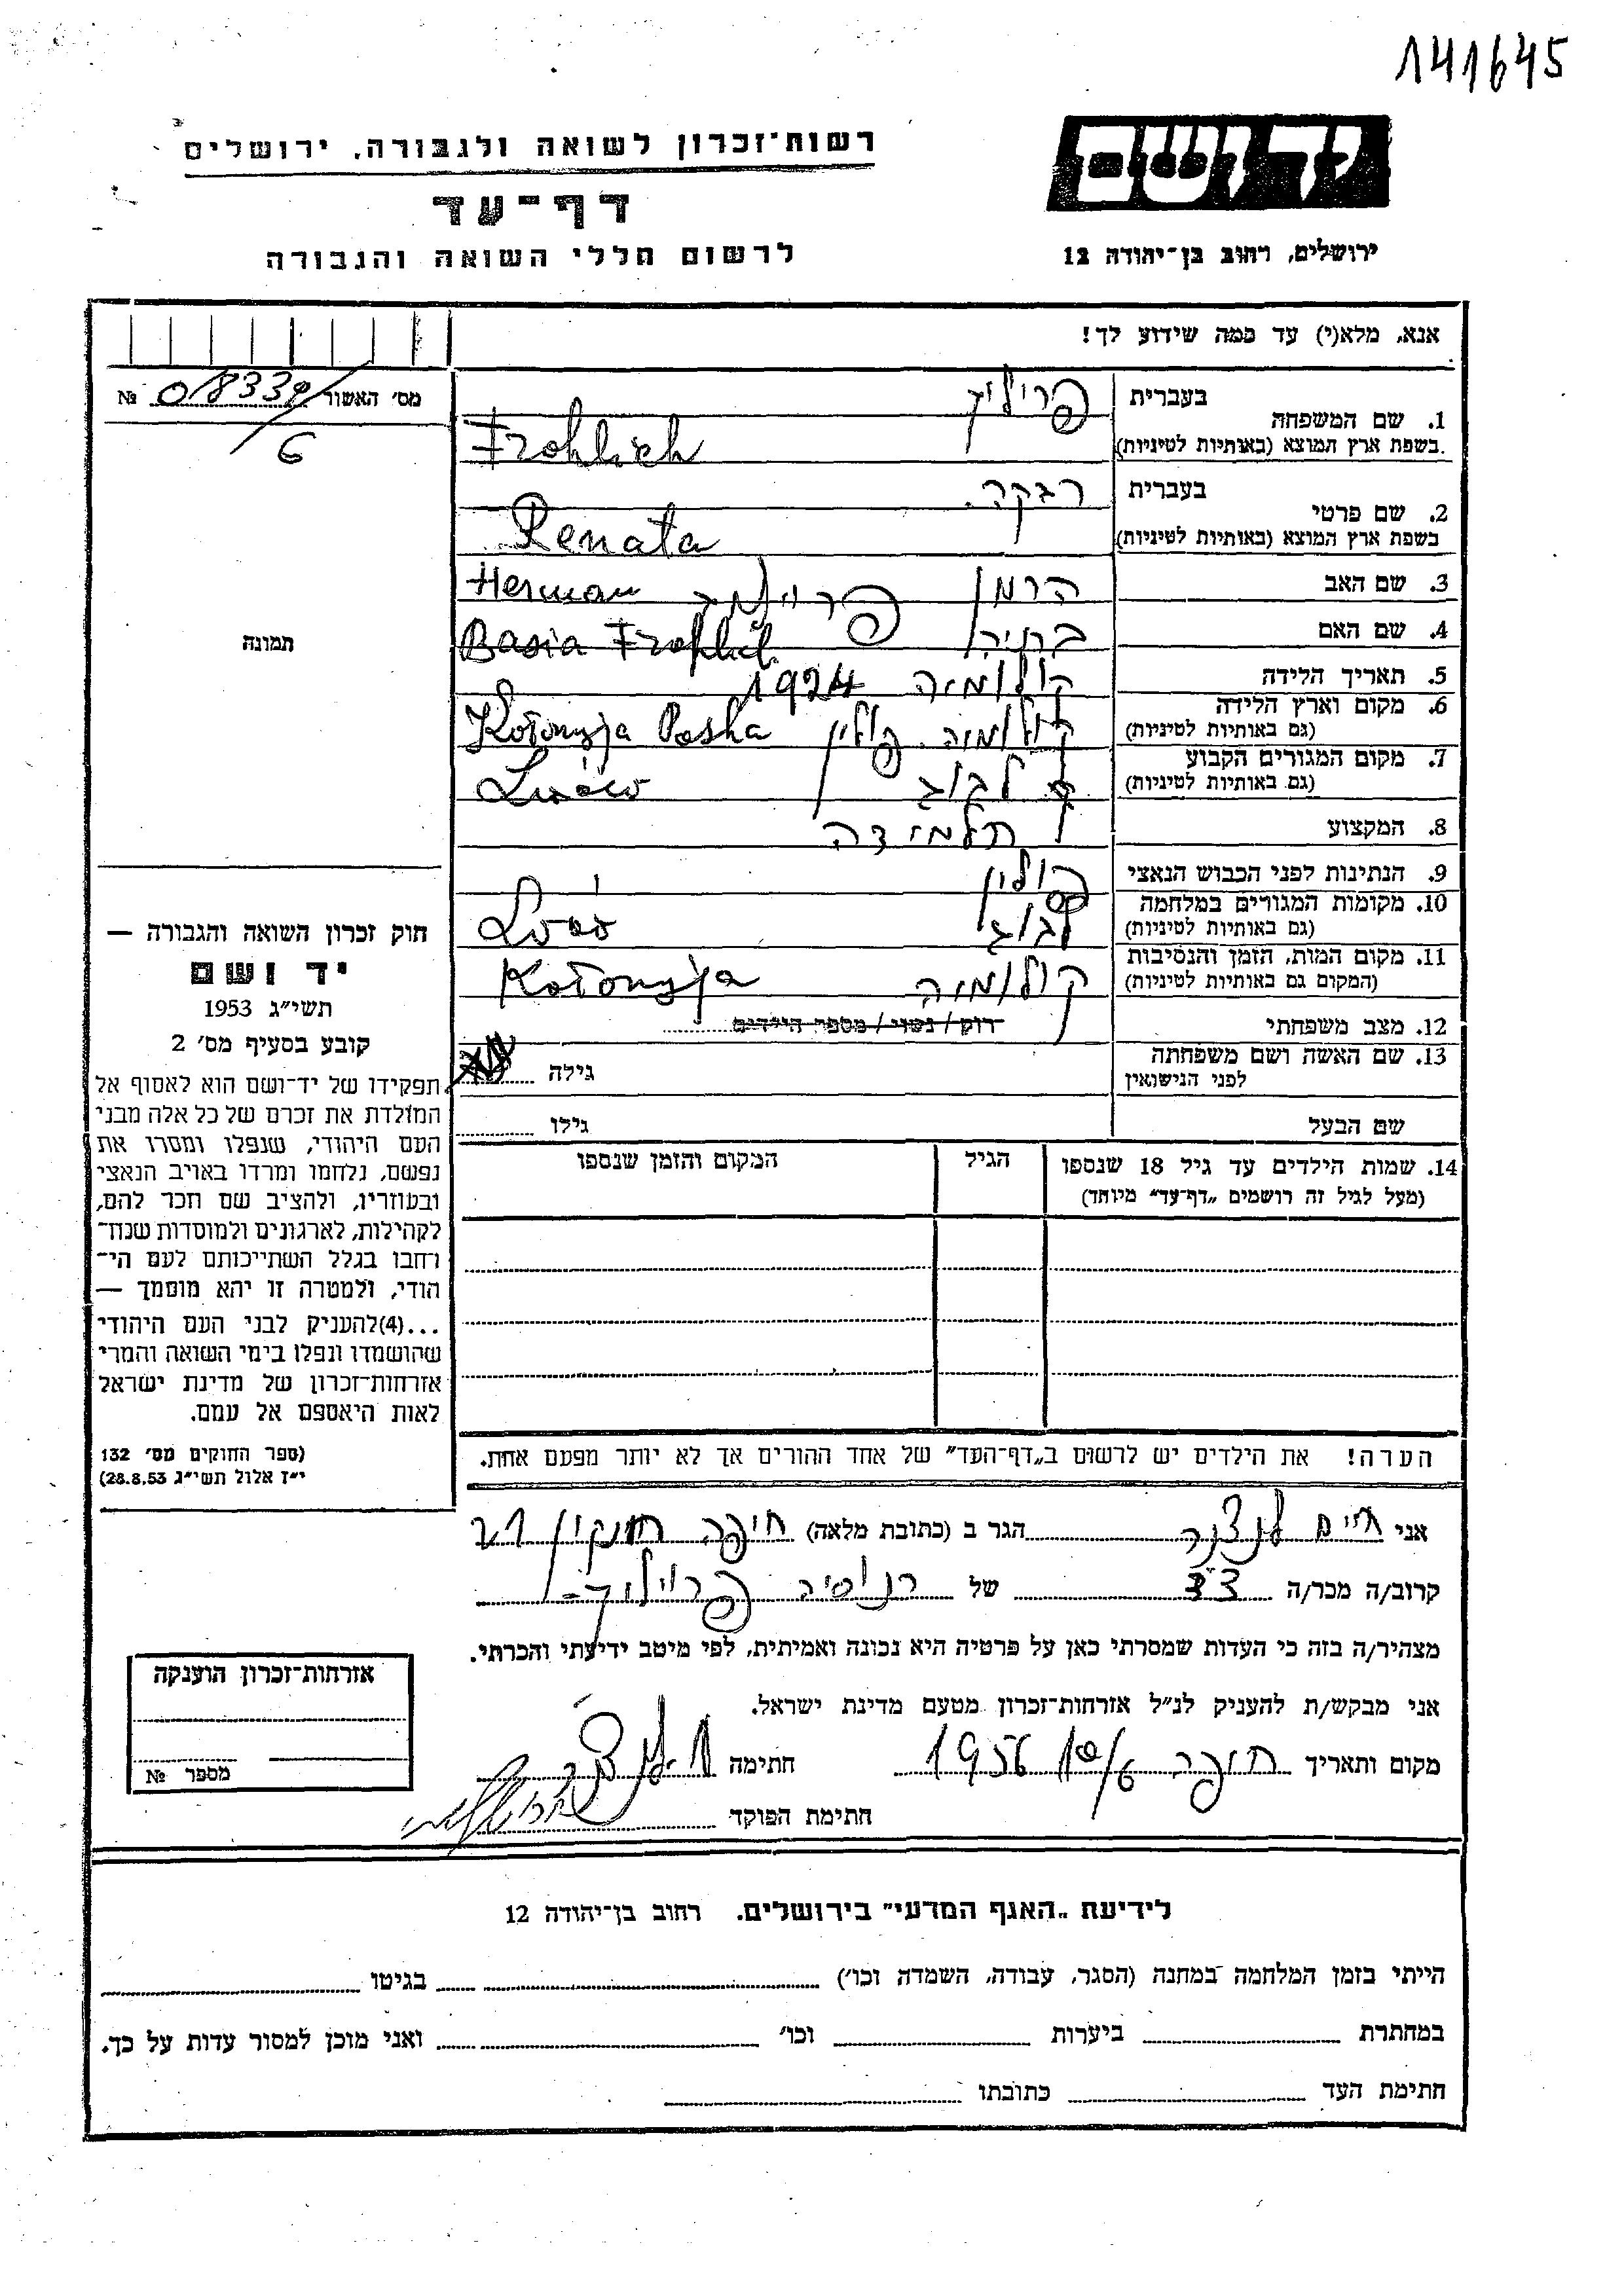 141645
יד ושם
ירושלים, רחוב בן־יהודה 12
רשות־זכרון לשואה ולגבורה, ירושלים
דף־עד
לרשום חללי השואה והגבורה
אנא, מלא(י) עד כמה שידוע לך!
מס׳ האשור № 018339/6
תמונה
1. שם המשפחה בעברית פרוליך
בשפת ארץ המוצא (באותיות לטיניות) Frohlich
2. שם פרטי בעברית רבקה
בשפת ארץ המוצא (באותיות לטיניות) Renata
3. שם האב הרמן Herman
4. שם האם ברטה Basia Frohlich
5. תאריך הלידה קולומיה 1924
6. מקום וארץ הלידה
(גם באותיות לטיניות) קולומיה פולין Kołomyja Polska
7. מקום המגורים הקבוע
(גם באותיות לטיניות) לבוב Lwów
8. המקצוע תלמידה
9. הנתינות לפני הכבוש הנאצי פולין
10. מקומות המגורים במלחמה
(גם באותיות לטיניות) לבוב Lwów
11. מקום המות, הזמן והנסיבות
(המקום גם באותיות לטיניות) קולומיה Kołomyja
12. מצב משפחתי רוק / נשוי / מספר הילדים
13. שם האשה ושם משפחתה
לפני הנישואין גילה
שם הבעל גילו
14. שמות הילדים עד גיל 18 שנספו הגיל המקום והזמן שנספו
(מעל לגיל זה רושמים „דף־עד״ מיוחד)
חוק זכרון השואה והגבורה —
יד ושם
תשי״ג 1953
קובע בסעיף מס׳ 2
תפקידו של יד־ושם הוא לאסוף אל
המולדת את זכרם של כל אלה מבני
העם היהודי, שנפלו ומסרו את
נפשם, נלחמו ומרדו באויב הנאצי
ובעוזריו, ולהציב שם וזכר להם,
לקהילות, לארגונים ולמוסדות שנח־
רחבו בגלל השתייכותם לעם הי־
הודי, ולמטרה זו יהא מוסמך —
...(4)להעניק לבני העם היהודי
שהושמדו ונפלו בימי השואה והמרי
אזרחות־זכרון של מדינת ישראל
לאות היאספם אל עמם.
(ספר החוקים מס׳ 132
י״ז אלול תשי״ג 28.8.53)
הערה! את הילדים יש לרשום ב„דף־העד״ של אחד ההורים אך לא יותר מפעם אחת.
אני חיים לנדנר הגר ב (כתובת מלאה) חיפה חנקין
קרוב/ה מכר/ה של פרוליך
מצהיר/ה בזה כי העדות שמסרתי כאן על פרטיה היא נכונה ואמיתית, לפי מיטב ידיעתי והכרתי.
אני מבקש/ת להעניק לנ״ל אזרחות־זכרון מטעם מדינת ישראל.
מקום ותאריך חיפה 1956 חתימה
חתימת הפוקד
אזרחות־זכרון הוענקה
מספר №
לידיעת „האגף המדעי״ בירושלים. רחוב בן־יהודה 12
הייתי בזמן המלחמה במחנה (הסגר, עבודה, השמדה וכו׳) בגיטו
במחתרת ביערות וכו׳ ואני מוכן למסור עדות על כך.
חתימת העד כתובתו